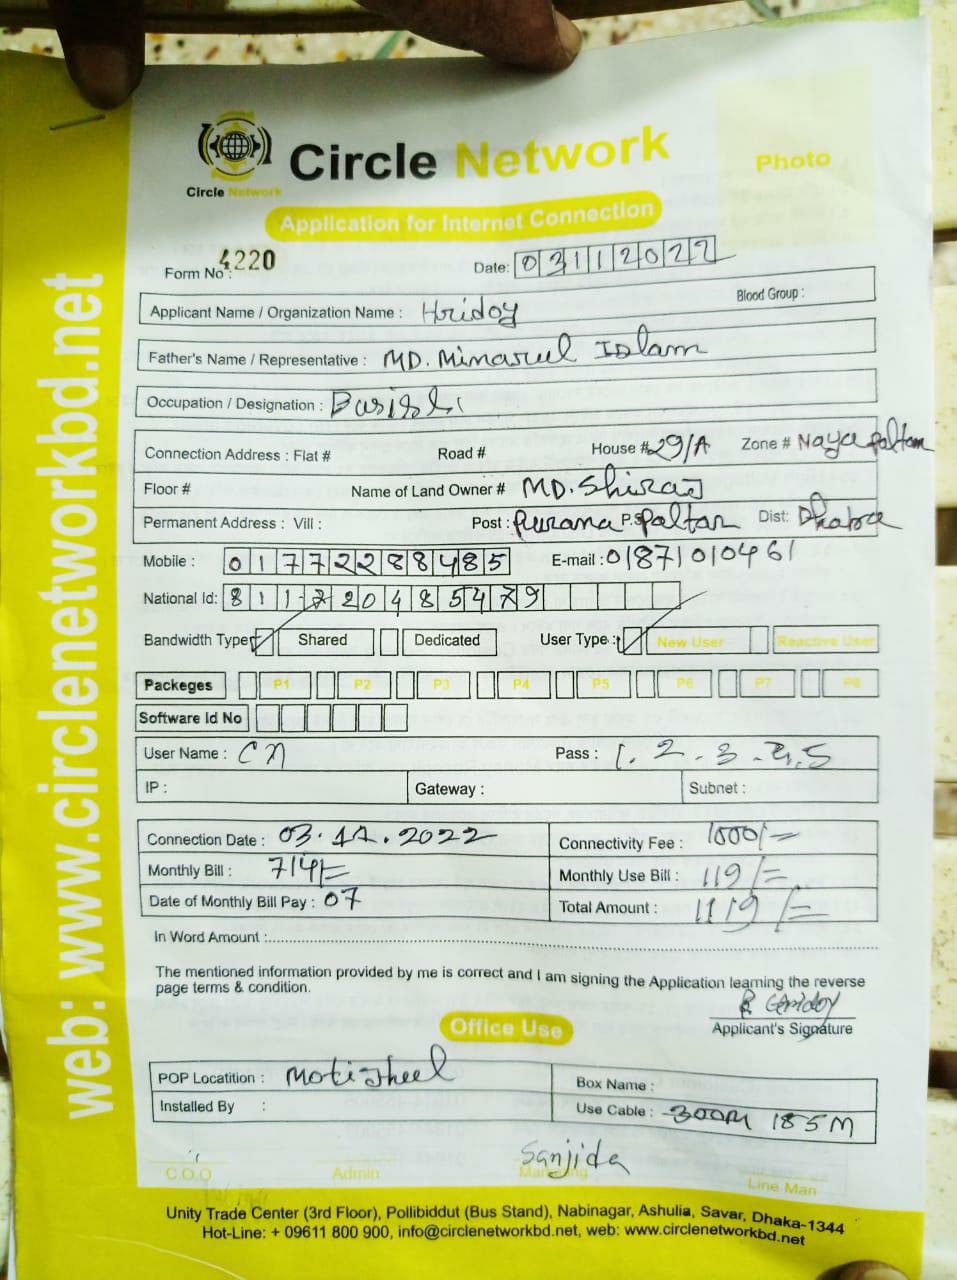 web: www.circlenetworkbd.net
Circle Network
Circle Network
Photo
Application for Internet Connection
Form No : 4220 Date: 03112022
Applicant Name / Organization Name : Hridoy Blood Group :
Father's Name / Representative : MD. Minarul Islam
Occupation / Designation :
Connection Address : Flat # Road # House # 29/A Zone # Naya paltan
Floor # Name of Land Owner # MD. Shiraj
Permanent Address : Vill : Post : Purana P.S paltan Dist: Dhaka
Mobile : 01772288485 E-mail : 01871010461
National Id: 811720485479
Bandwidth Type: Shared Dedicated User Type : New User Reactive User
Packeges P1 P2 P3 P4 P5 P6 P7 P8
Software Id No
User Name : Pass : 1. 2. 3. 4. 5
IP : Gateway : Subnet :
Connection Date : 03.11.2022 Connectivity Fee : 1000/=
Monthly Bill : 714/= Monthly Use Bill : 119/=
Date of Monthly Bill Pay : 07 Total Amount : 1119/=
In Word Amount :
The mentioned information provided by me is correct and I am signing the Application learning the reverse
page terms & condition.
Applicant's Signature
Office Use
POP Locatition : Motijheel Box Name :
Installed By : Use Cable : 300M 185M
Sanjida
C.O.O Admin Marketing Line Man
Unity Trade Center (3rd Floor), Pollibiddut (Bus Stand), Nabinagar, Ashulia, Savar, Dhaka-1344
Hot-Line: + 09611 800 900, info@circlenetworkbd.net, web: www.circlenetworkbd.net